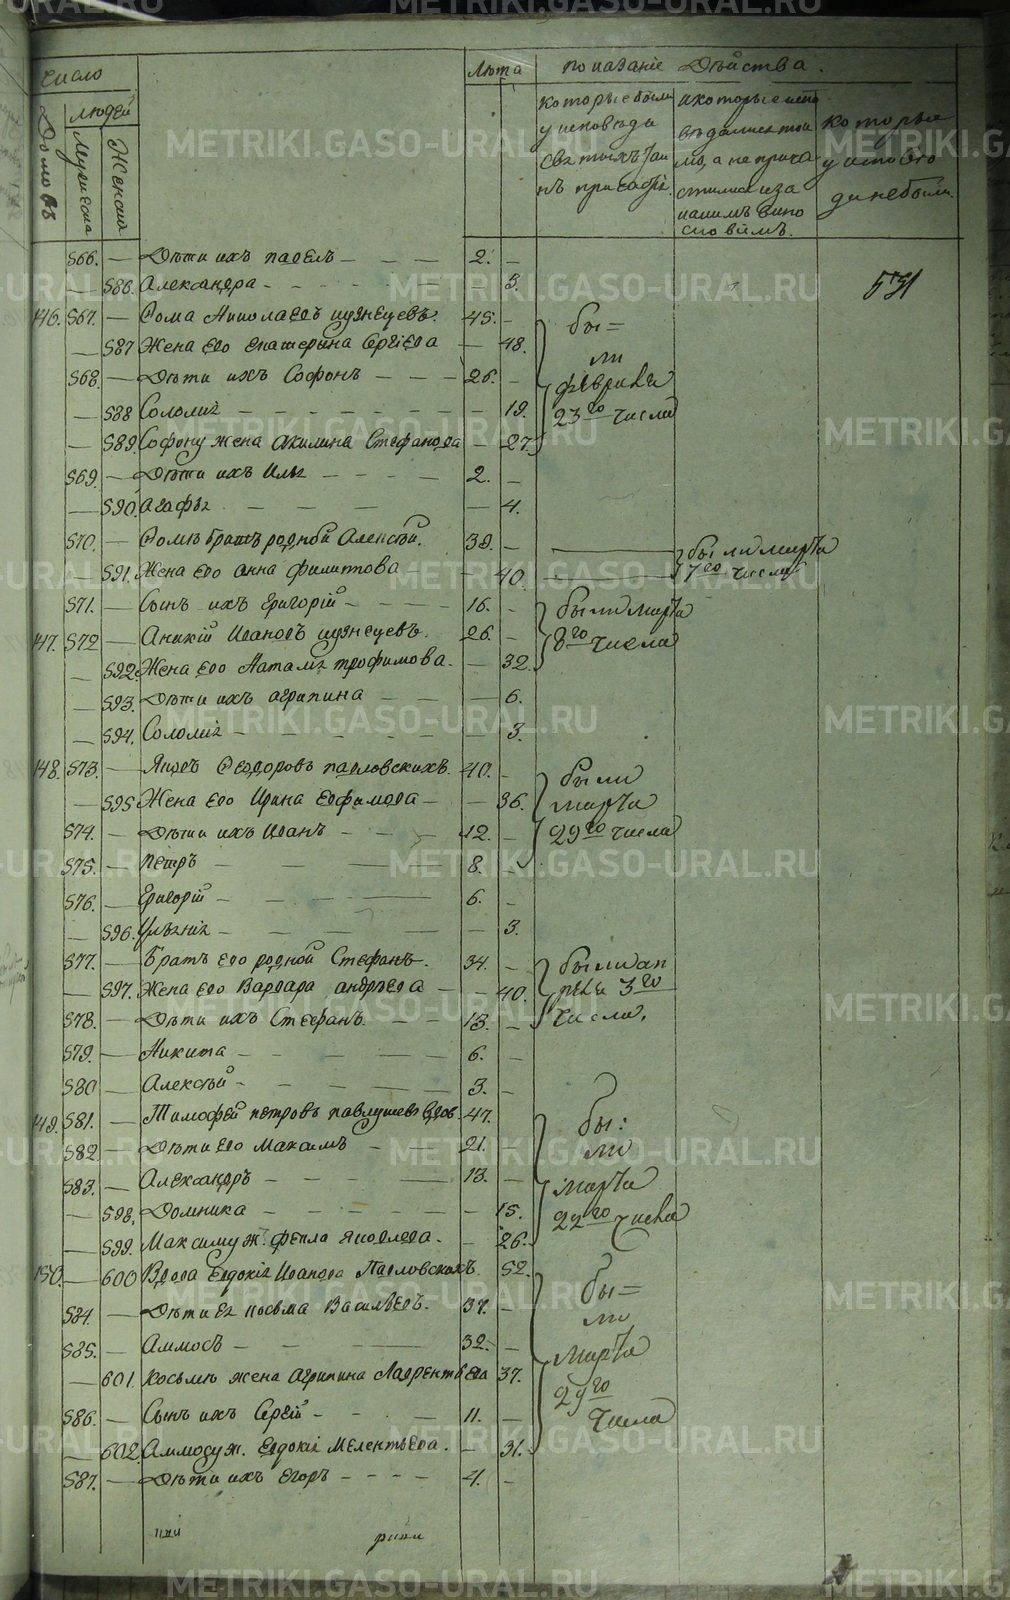 число
людей
Домовъ
Мужеска
Женска
Лѣта
показаніе Дѣйства.
которые были
у исповѣди
святыхъ таи
нъ причастіи
и которые испо
вѣдались токи
мо, а не прича
стились и за
какимъ вино
словіемъ.
которые
у исповѣ
ди не были.
566. — Дѣти ихъ павелъ — — — 2. —
— 586. Александра — 3.
146. 567. — Фома Николаевъ кузнецевъ. 45. —
— 587 Жена его екатерина Сергіева — 48.
568. — Дѣти ихъ Софонъ — — — 26. —
— 588 Соломия — 19.
— 589. Софону жена акилина Стефанова — 27.
бы=
ли
февраля
23го числа
569. — Дѣти ихъ Илья — — — 2. —
— 590. агафья — 4.
570. — Фомѣ братъ родной Алексѣй. 39. —
— 591. Жена его анна филиппова — 40.
были марта
7го числа
571. — Сынъ ихъ григорій — — — 16. —
147. 572 — Аникій Ивановъ кузнецевъ. 26. —
— 592. Жена его Наталья трофимова. — 32.
были марта
8го числа
— 593. Дѣти ихъ агрипина — — — 6.
— 594. Соломия — 3.
148. 573. — Яковъ Феодоровъ павловскихъ. 40. —
— 595 Жена его Ирина ефимова — — 36.
574. — Дѣти ихъ Иванъ — — — 12. —
575. — петръ — 8. —
были
марта
29го числа
576. — григорій — 6. —
— 596. Ульяния — 3.
577. — Братъ его родной Стефанъ. 34. —
— 597. Жена его Варвара андреева — — 40.
578. — Дѣти ихъ Стефанъ — 13. —
были ап
реля 3го
числа.
579. — Никита — 6. —
580 — Алексѣй — 3. —
149. 581. — Тимофей петровъ павлушевъ вдов. 47.
582 — Дѣти его Максимъ — 21. —
583. — Александръ — 13. —
— 598. Домника — 15.
— 599. Максиму ж. фекла яковлева. — 26.
бы:
ли
марта
22го числа
150. — 600 Вдова Евдокія Иванова Павловскихъ 52.
584. — Дѣти ея косьма Васильевъ. 37. —
585. — Аммосъ — 32. —
— 601. Косьмѣ жена агрипина Лаврентьева 37.
586. — Сынъ ихъ Сергій — 11. —
— 602. Аммосу ж. Евдокія Мелентьева. — 31.
бы=
ли
марта
29го
числа
587. — Дѣти ихъ егоръ — — — — 4. —
METRIKI.GASO-URAL.RU